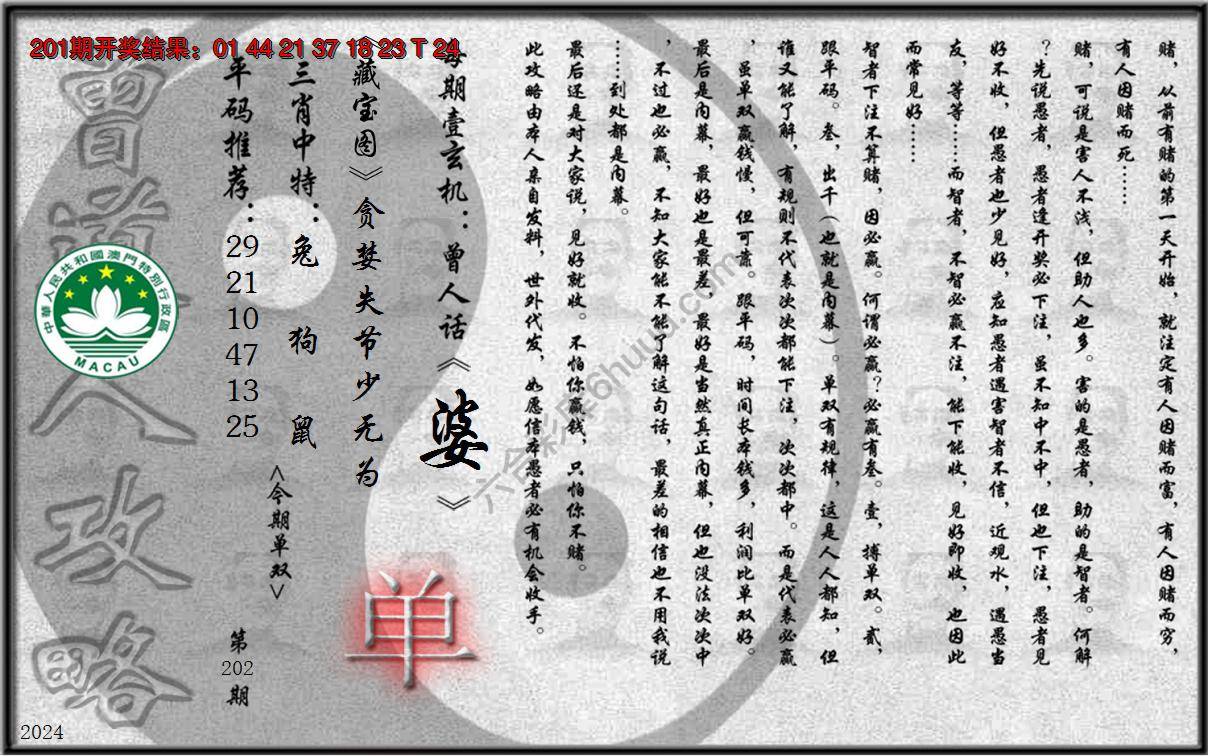 201期开奖结果：01 44 21 37 18 23 T 24
赌，从前有赌的第一天开始，就注定有人因赌而富，有人因赌而穷，
有人因赌而死……
赌，可说是害人不浅，但助人也多。害的是愚者，助的是智者。何解
？先说愚者，愚者逢开奖必下注，虽不知中不中，但也下注，愚者见
好不收，但愚者也少见好，应知愚者遇害智者不信，近观水，遇愚当
友，等等……而智者，不智必赢不注，能下能收，见好即收，也因此
而常见好……
智者下注不算赌，因必赢。何谓必赢？必赢有叁。壹，搏单双。贰，
跟平码。叁，出千（也就是内幕）。单双有规律，这是人人都知，但
谁又能了解，有规则不代表次次都能下注，次次都中。而是代表必赢
，虽单双赢钱慢，但可靠。跟平码，时间长本钱多，利润比单双好。
最后是内幕，最好也是最差，最好是当然真正内幕，但也没法次次中
，不过也必赢，不知大家能不能了解这句话，最差的相信也不用我说
……到处都是内幕。
最后还是对大家说，见好就收。不怕你赢钱，只怕你不赌。
此攻略由本人亲自发料，世外代发，如愿信本愚者必有机会收手。
每期壹玄机：曾人话《婆》
《藏宝图》贪婪失节少无为
三肖中特：兔 狗 鼠
平码推荐：
29
21
10
47
13
25
<今期单双>
单
第
202
期
曾道人攻略
中華人民共和國澳門特別行政區
MACAU
六合彩库6huuu.com
2024